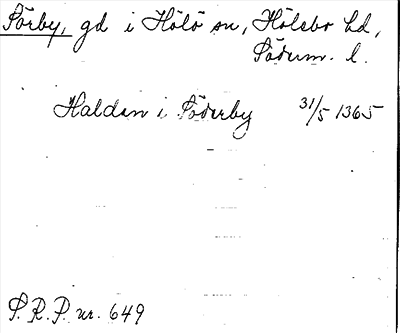 Sörby, gd i Hölö sn, Hölebo hd,
Söderm. l.
Haldan i Söderby 31/5 1365
S.R.P. nr. 649